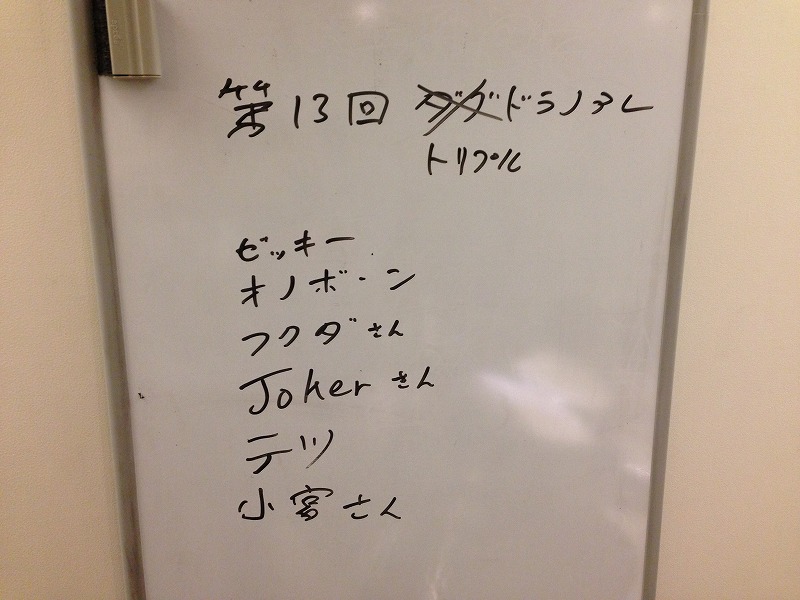 第13回
トリプル
ビッキー
オノボーン
フクダさん
Jokerさん
テツ
小宮さん